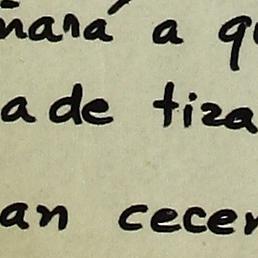 mañana a qu
a de tiza
an cecer